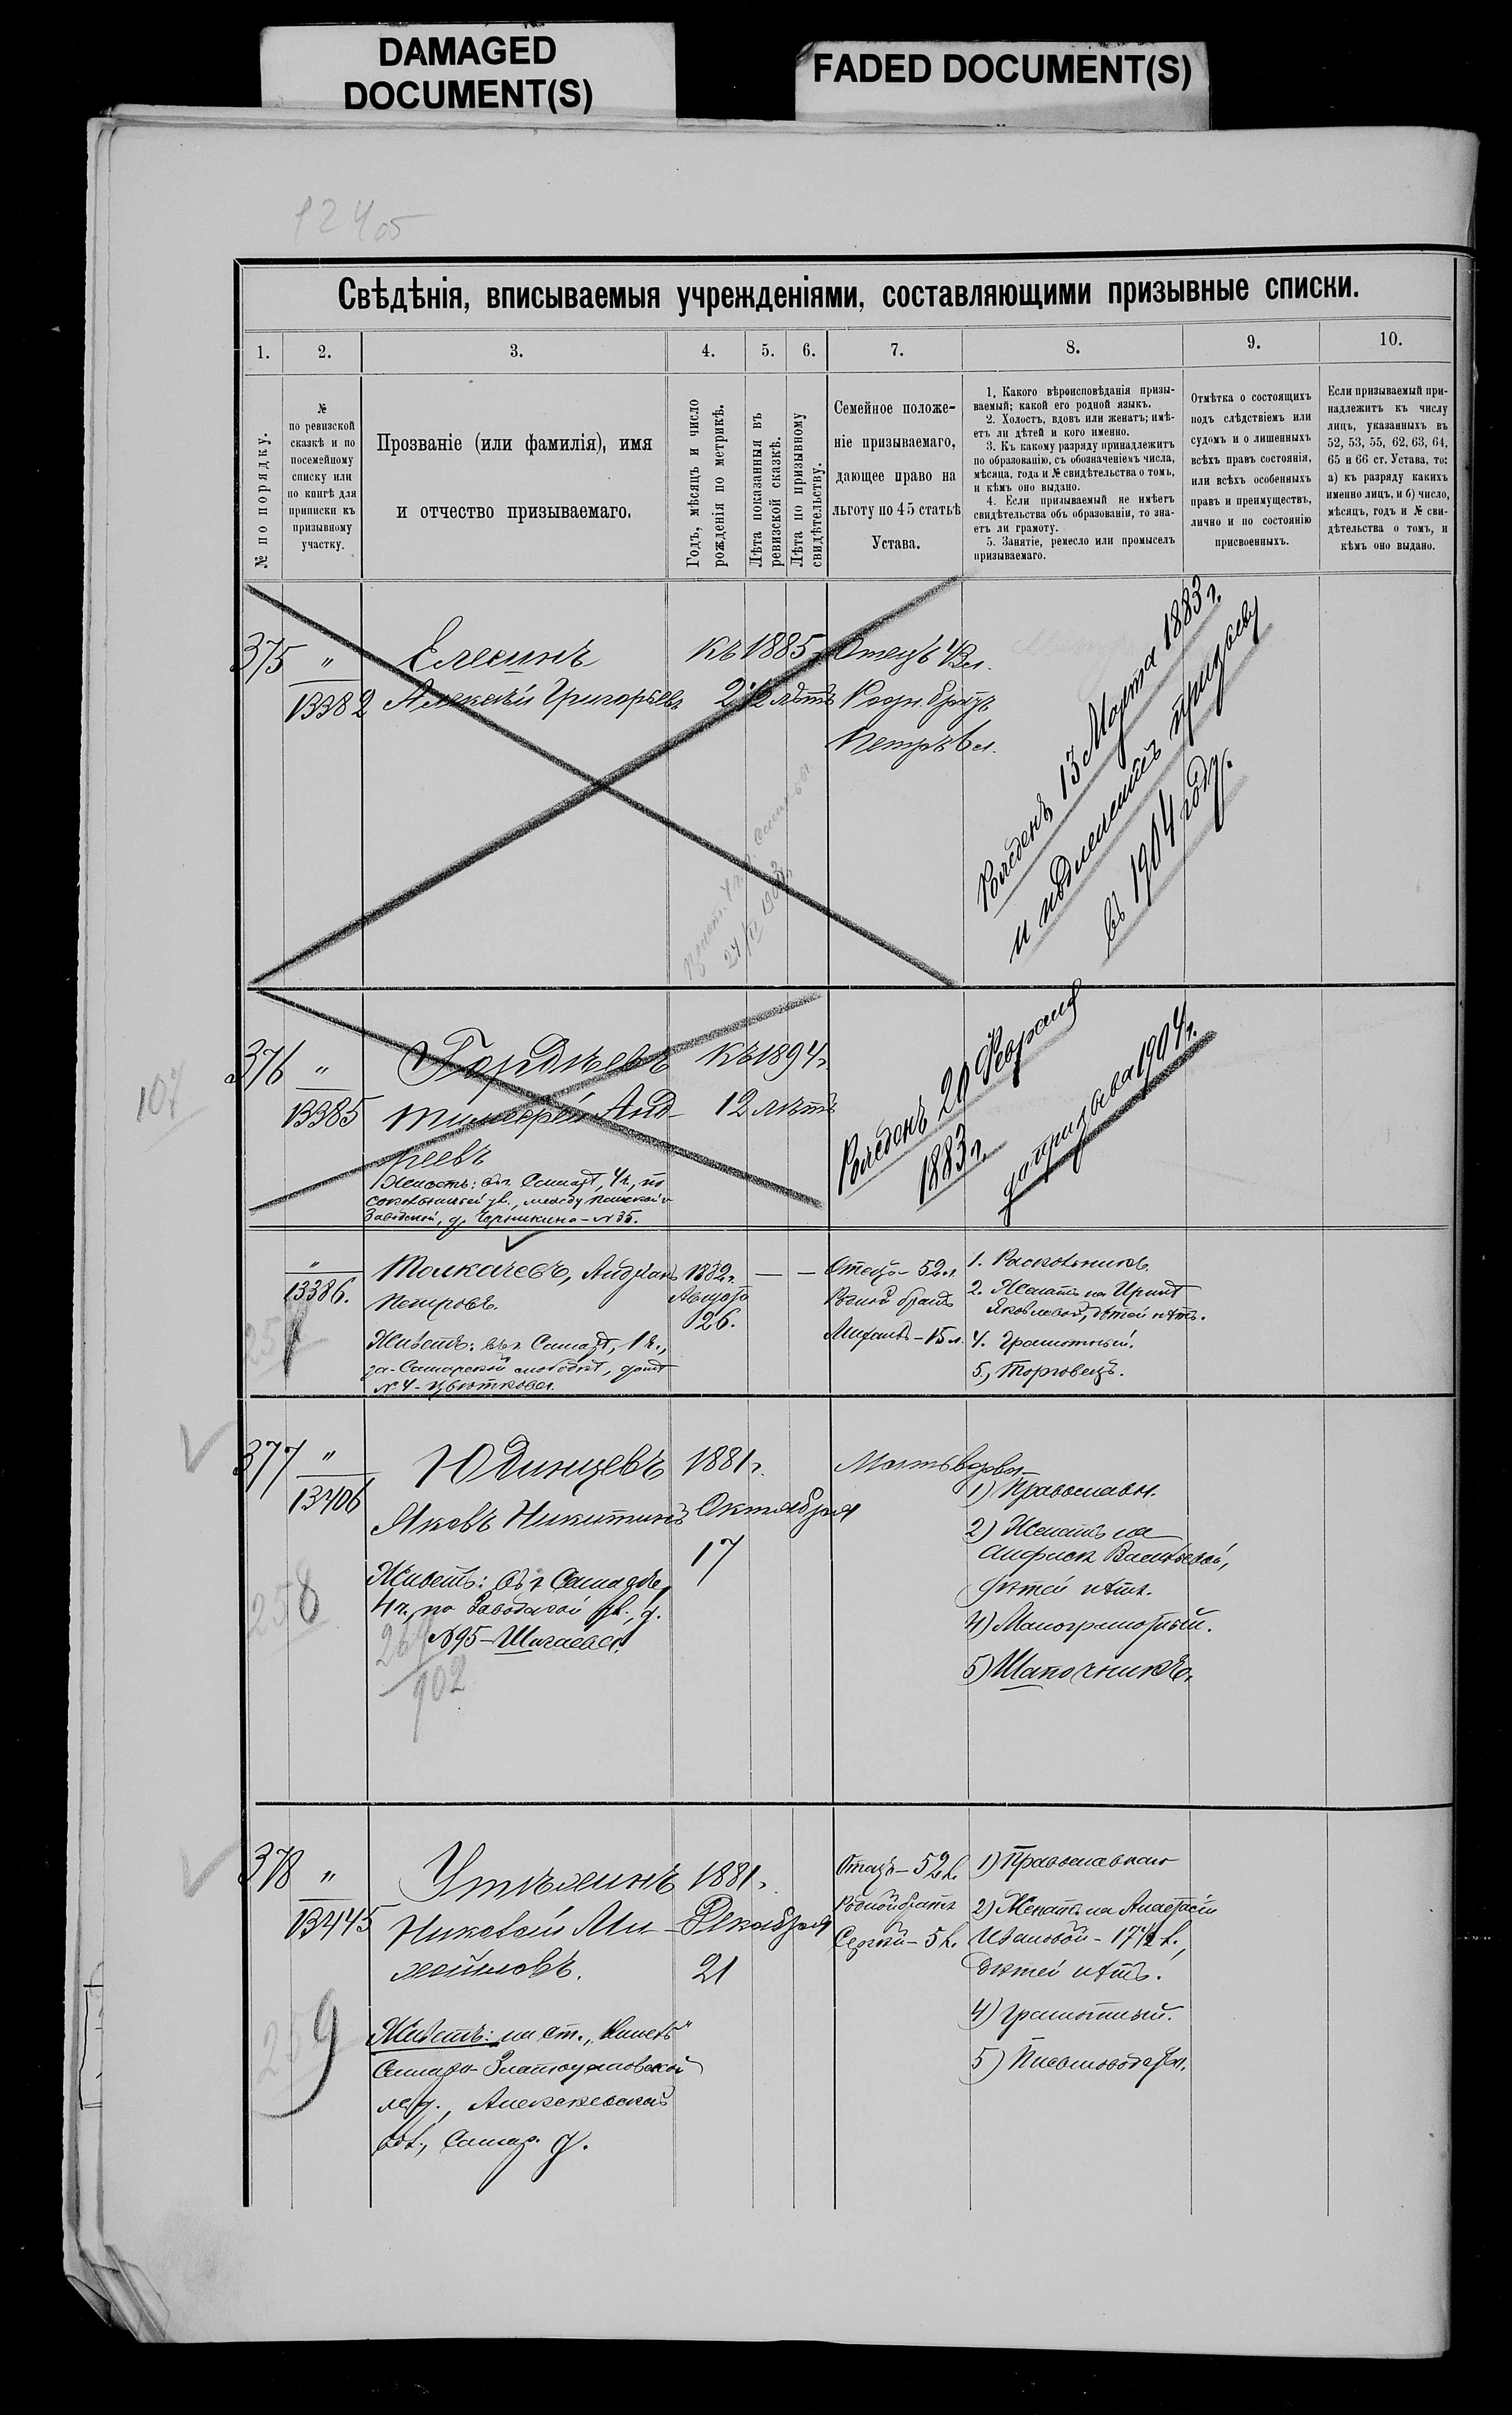 DAMAGED
DOCUMENT(S)
FADED DOCUMENT(S)
Свѣдѣнія, вписываемыя учрежденіями, составляющими призывные списки.
1.
2.
3.
4.
5.
6.
7.
8.
9.
10.
№ по порядку.
№
по ревизской
сказкѣ и по
посемейному
списку или
по книгѣ для
приписки къ
призывному
участку.
Прозваніе (или фамилія), имя
и отчество призываемаго.
Годъ, мѣсяцъ и число
рожденія по метрикѣ.
Лѣта показанныя въ
ревизской сказкѣ.
Лѣта по призывному
свидѣтельству.
Семейное положе-
ніе призываемаго,
дающее право на
льготу по 45 статьѣ
Устава.
1. Какого вѣроисповѣданія призы-
ваемый; какой его родной языкъ.
2. Холостъ, вдовъ или женатъ; имѣ-
етъ ли дѣтей и кого именно.
3. Къ какому разряду принадлежитъ
по образованію, съ обозначеніемъ числа,
мѣсяца, года и № свидѣтельства о томъ,
и кѣмъ оно выдано.
4. Если призываемый не имѣетъ
свидѣтельства объ образованіи, то зна-
етъ ли грамоту.
5. Занятіе, ремесло или промыселъ
призываемаго.
Отмѣтка о состоящихъ
подъ слѣдствіемъ или
судомъ и о лишенныхъ
всѣхъ правъ состоянія,
или всѣхъ особенныхъ
правъ и преимуществъ,
лично и по состоянію
присвоенныхъ.
Если призываемый при-
надлежитъ къ числу
лицъ, указанныхъ въ
52, 53, 55, 62, 63, 64,
65 и 66 ст. Устава, то:
а) къ разряду какихъ
именно лицъ, и б) число,
мѣсяцъ, годъ и № сви-
дѣтельства о томъ, и
кѣмъ оно выдано.
375 "
13382
Елесинъ
Алексѣй Григорьевъ
Къ 1885
2 1/2 лѣтъ
Отецъ 43 л.
Родн. братъ
Петръ 6 л.
Рожденъ 13 Марта 1883 г.
и подлежитъ призыву
въ 1904 году.
107
376 "
13385
Гордѣевъ
Тимофей Анд-
реевъ
Къ 1894 г.
12 лѣтъ
Рожденъ 20 Февраля
1883 г.
до призыва 1904 г.
Живетъ: въ г. Самарѣ, 4 ч., по
№ 35.
"
13386.
Толкачевъ, Андрiанъ
Петровъ.
Живетъ: въ г. Самарѣ, 1 ч.,
за-Самарской слободкѣ, домъ
№ 4 - Цвѣткова.
1882 г.
Августа
26.
Отецъ - 52 л.
Родной братъ
Михаилъ - 15 л.
1. Раскольникъ.
2. Женатъ на Иринѣ
Яковлевой, дѣтей нѣтъ.
4. Грамотный.
5., Торговецъ.
377 "
13406
258
Юдинцевъ
Яковъ Никитинъ
Живетъ: въ г. Самарѣ,
4 ч., по Заводской ул., д.
№ 95 - Шигаева.
902
1881 г.
Октября
17
Мать вдова
1) Православн.
2) Женатъ на
Анфисѣ Васильевой,
дѣтей нѣтъ.
4) Малограмотный.
5) Шапочникъ.
378 "
13445
259
Утѣхинъ
Николай Ми-
хайловъ.
Живетъ: на ст. „Кинель"
Самаро-Златоустовской
ж. д., Алексѣевской
вол., Самар. у.
1881 г.
Декабря
21
Отецъ - 52 л.
Родной братъ
Сергѣй - 5 л.
1) Православнаго
2) Женатъ на Анастасіи
Ивановой - 17 1/2 л.,
дѣтей нѣтъ.
4) Грамотный.
5) Письмоводст.